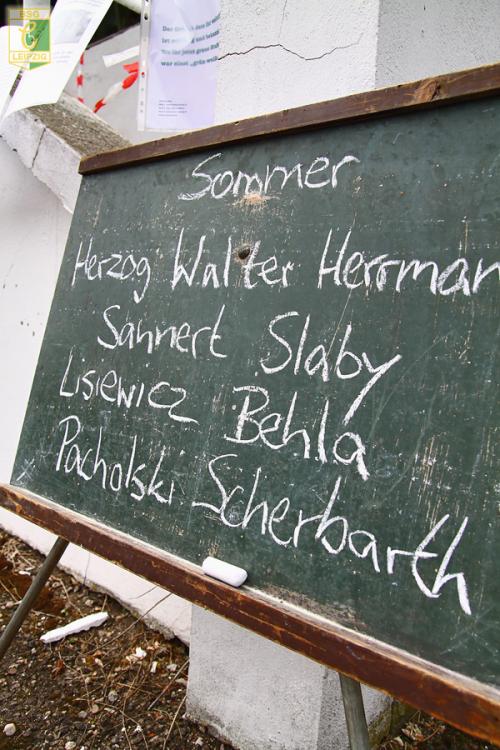 BSG
LEIPZIG
war einst „grün weiß
Sommer
Herzog Walter Herrman
Sannert Slaby
Lisiewicz Behla
Pacholski Scherbarth